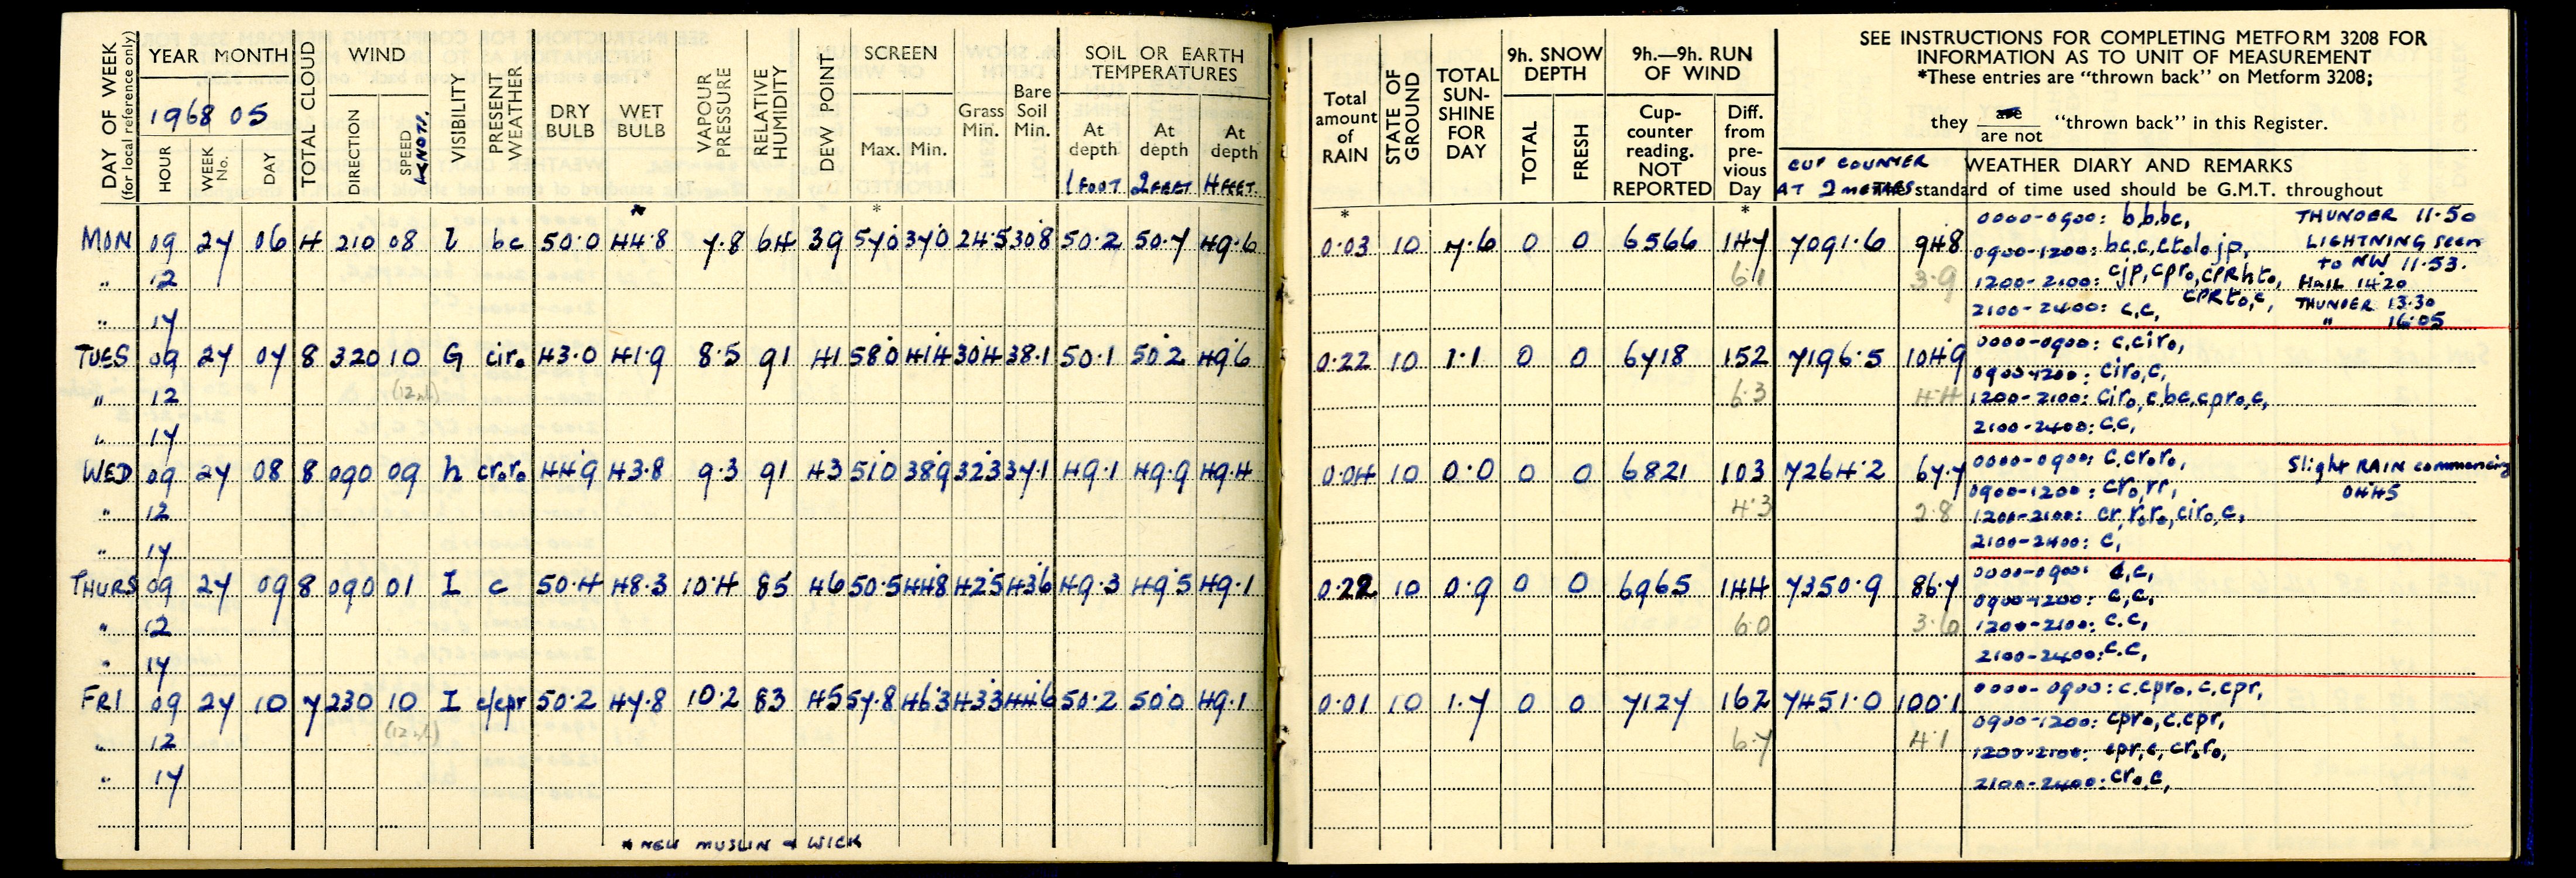 DAY OF WEEK (for local reference only) YEAR MONTH TOTAL CLOUD WIND VISIBILITY PRESENT WEATHER DRY BULB WET BULB VAPOUR PRESSURE RELATIVE HUMIDITY DEW POINT SCREEN Grass Min. Bare Soil Min. SOIL OR EARTH TEMPERATURES
1968 05
HOUR WEEK No. DAY DIRECTION SPEED KNOTS. Max. Min. At depth At depth At depth
1 FOOT 2 FEET 4 FEET.
* *
MON 09 27 06 4 210 08 I bc 50.0 44.8 7.8 64 39 57.0 37.0 24.5 30.8 50.2 50.7 49.6
" 12
" 17
TUES 09 27 07 8 320 10 G ciro 43.0 41.9 8.5 91 41 58.0 41.4 30.4 38.1 50.1 50.2 49.6
" 12
" 17
WED 09 27 08 8 090 09 h croro 44.9 43.8 9.3 91 43 51.0 38.9 32.3 37.1 49.1 49.9 49.4
" 12
" 17
THURS 09 27 09 8 090 01 I c 50.4 48.3 10.4 85 46 50.5 44.8 42.5 43.6 49.3 49.5 49.1
" 12
" 17
FRI 09 27 10 7 230 10 I c/cpr 50.2 47.8 10.2 83 45 57.8 46.3 43.3 44.6 50.2 50.0 49.1
" 12
" 17
* NEW MUSLIN + WICK
Total amount of RAIN STATE OF GROUND TOTAL SUN-SHINE FOR DAY 9h. SNOW DEPTH 9h.—9h. RUN OF WIND
TOTAL FRESH Cup-counter reading. NOT REPORTED Diff. from pre-vious Day
SEE INSTRUCTIONS FOR COMPLETING METFORM 3208 FOR
INFORMATION AS TO UNIT OF MEASUREMENT
*These entries are "thrown back" on Metform 3208;
they are / are not "thrown back" in this Register.
CUP COUNTER AT 2 METRES
WEATHER DIARY AND REMARKS
The standard of time used should be G.M.T. throughout
* *
0.03 10 7.6 0 0 6566 147 7091.6 94.8 0000-0900: b.b.bc,
THUNDER 11.50
0900-1200: bc,c,ctolojp,
LIGHTNING seen
to NW 11.53.
6.1 3.9 1200-2100: cjp,cpro,cPRhto,
HAIL 14.20
cPRto,c,
THUNDER 13.30
2100-2400: c,c,
" 16.05
0.22 10 1.1 0 0 6718 152 7196.5 104.9 0000-0900: c,ciro,
0900-1200: ciro,c,
6.3 4.4 1200-2100: ciro,c,bc,cpro,c,
2100-2400: c.c,
0.04 10 0.0 0 0 6821 103 7264.2 67.7 0000-0900: c,croro,
Slight RAIN commencing
0445
0900-1200: cro,rr,
4.3 2.8 1200-2100: cr,roro,ciro,c,
2100-2400: c,
0.22 10 0.9 0 0 6965 144 7350.9 86.7 0000-0900: c,c,
0900-1200: c,c,
6.0 3.6 1200-2100: c.c,
2100-2400: c.c,
0.01 10 1.7 0 0 7127 162 7451.0 100.1 0000-0900: c.cpro,c.cpr,
0900-1200: cpro,c.cpr,
6.7 4.1 1200-2100: cpr,c,croro,
2100-2400: cro,c,